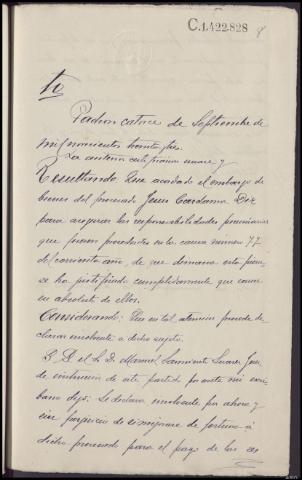 C.1.422.828
8
to
Padron catorce de Septiembre de
mil novecientos treinta y tres.
La anterior certificación unase y
Resultando: Que acordado el embargo de
bienes del procesado Jesus Cardama Diz
para asegurar las responsabilidades pecuniarias
que fueran procedentes en la causa numero 77
del corriente año, de que dimana esta pieza
se ha justificado cumplidamente que carece
en absoluto de ellos.
Considerando: Que en tal atencion procede de-
clarar insolvente a dicho sujeto.
S. S. el L. D. Manuel Suarez Juez
de instrucción de este partido por ante mi escri-
bano dijo: Se declara insolvente por ahora y
sin perjuicio de si mejorare de fortuna á
dicho procesado para el pago de las